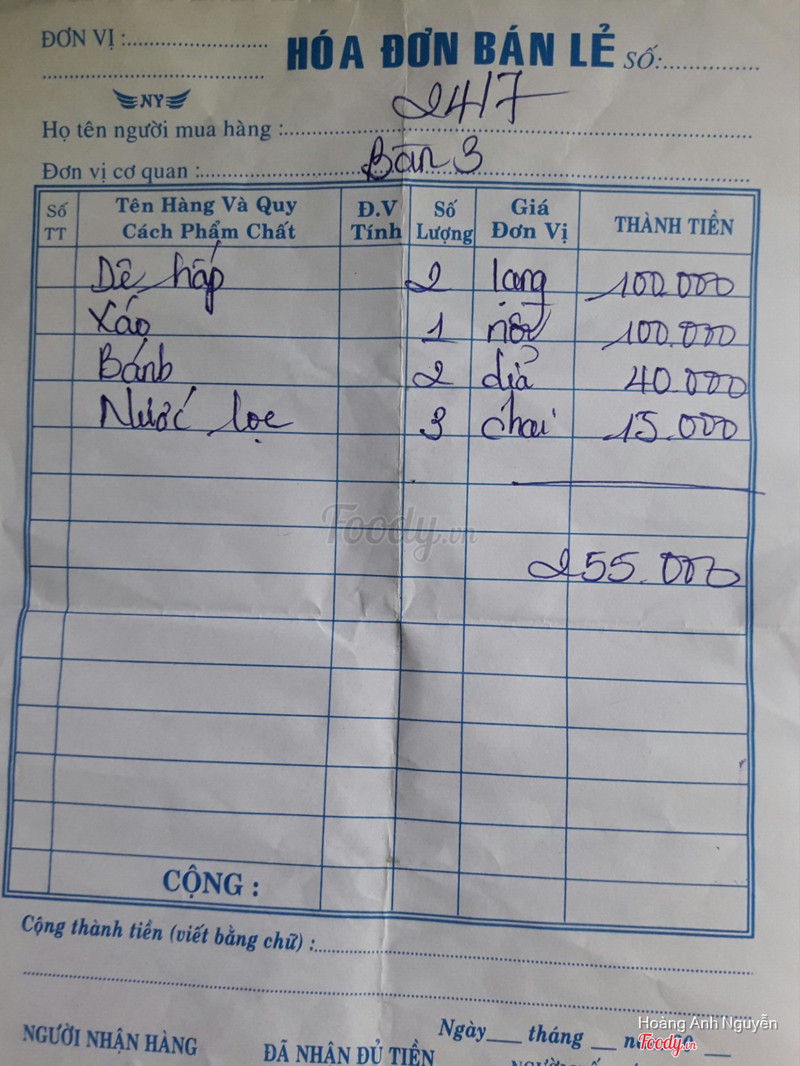 ĐƠN VỊ :
HÓA ĐƠN BÁN LẺ SỐ:
NY
24/7
Họ tên người mua hàng :
Đơn vị cơ quan : Bàn 3
Số TT Tên Hàng Và Quy Cách Phẩm Chất Đ.V Tính Số Lượng Giá Đơn Vị THÀNH TIỀN
Dê hấp 2 lạng 100.000
Xáo 1 nồi 100.000
Bánh 2 dĩa 40.000
Nước lọc 3 chai 15.000
Foody.vn
255.000
CỘNG :
Cộng thành tiền (viết bằng chữ) :
Ngày tháng
Hoàng Anh Nguyễn
Foody.vn
NGƯỜI NHẬN HÀNG ĐÃ NHÂN ĐỦ TIỀN